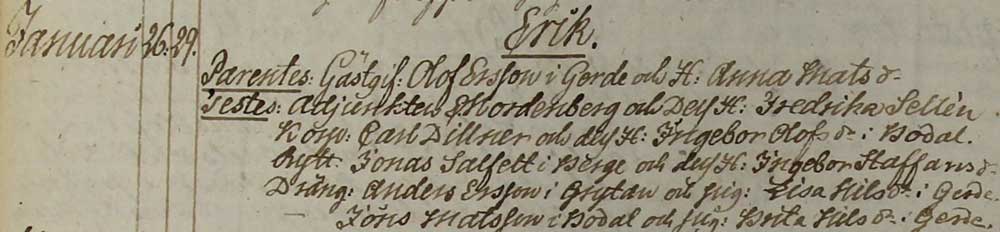 Erik.
Januari 26. 29.
Parentes: Gästgif: Olof Ersson i Gerde och H: Anna Mats dr
Testes: Adjunkten Nordenberg och Dess H: Fredrika Sellén
Korp: Carl Dillner och dess H: Ingebor Olofs dr i Bodal.
Ryttr Jonas Salfelt i Berge och dess H: Ingebor Staffans dr
Dräng: Anders Ersson i Grytan och pig: Lisa Nils dr i Gerde
Jöns Matsson i Bodal och pig: Brita Nils dr i Gerde.